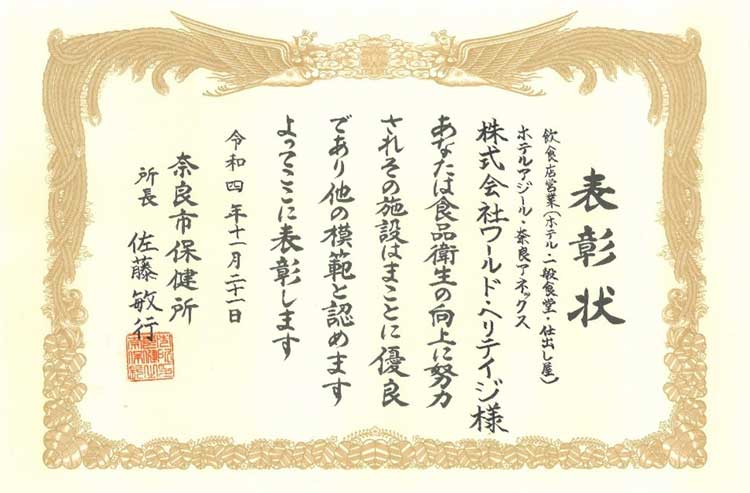 表彰状
飲食店営業(ホテル・一般食堂・仕出し屋)
ホテルアジール・奈良アネックス
株式会社ワールド・ヘリテイジ様
あなたは食品衛生の向上に努力
されその施設はまことに優良
であり他の模範と認めます
よってここに表彰します
令和四年十一月二十一日
奈良市保健所
所長 佐藤敏行